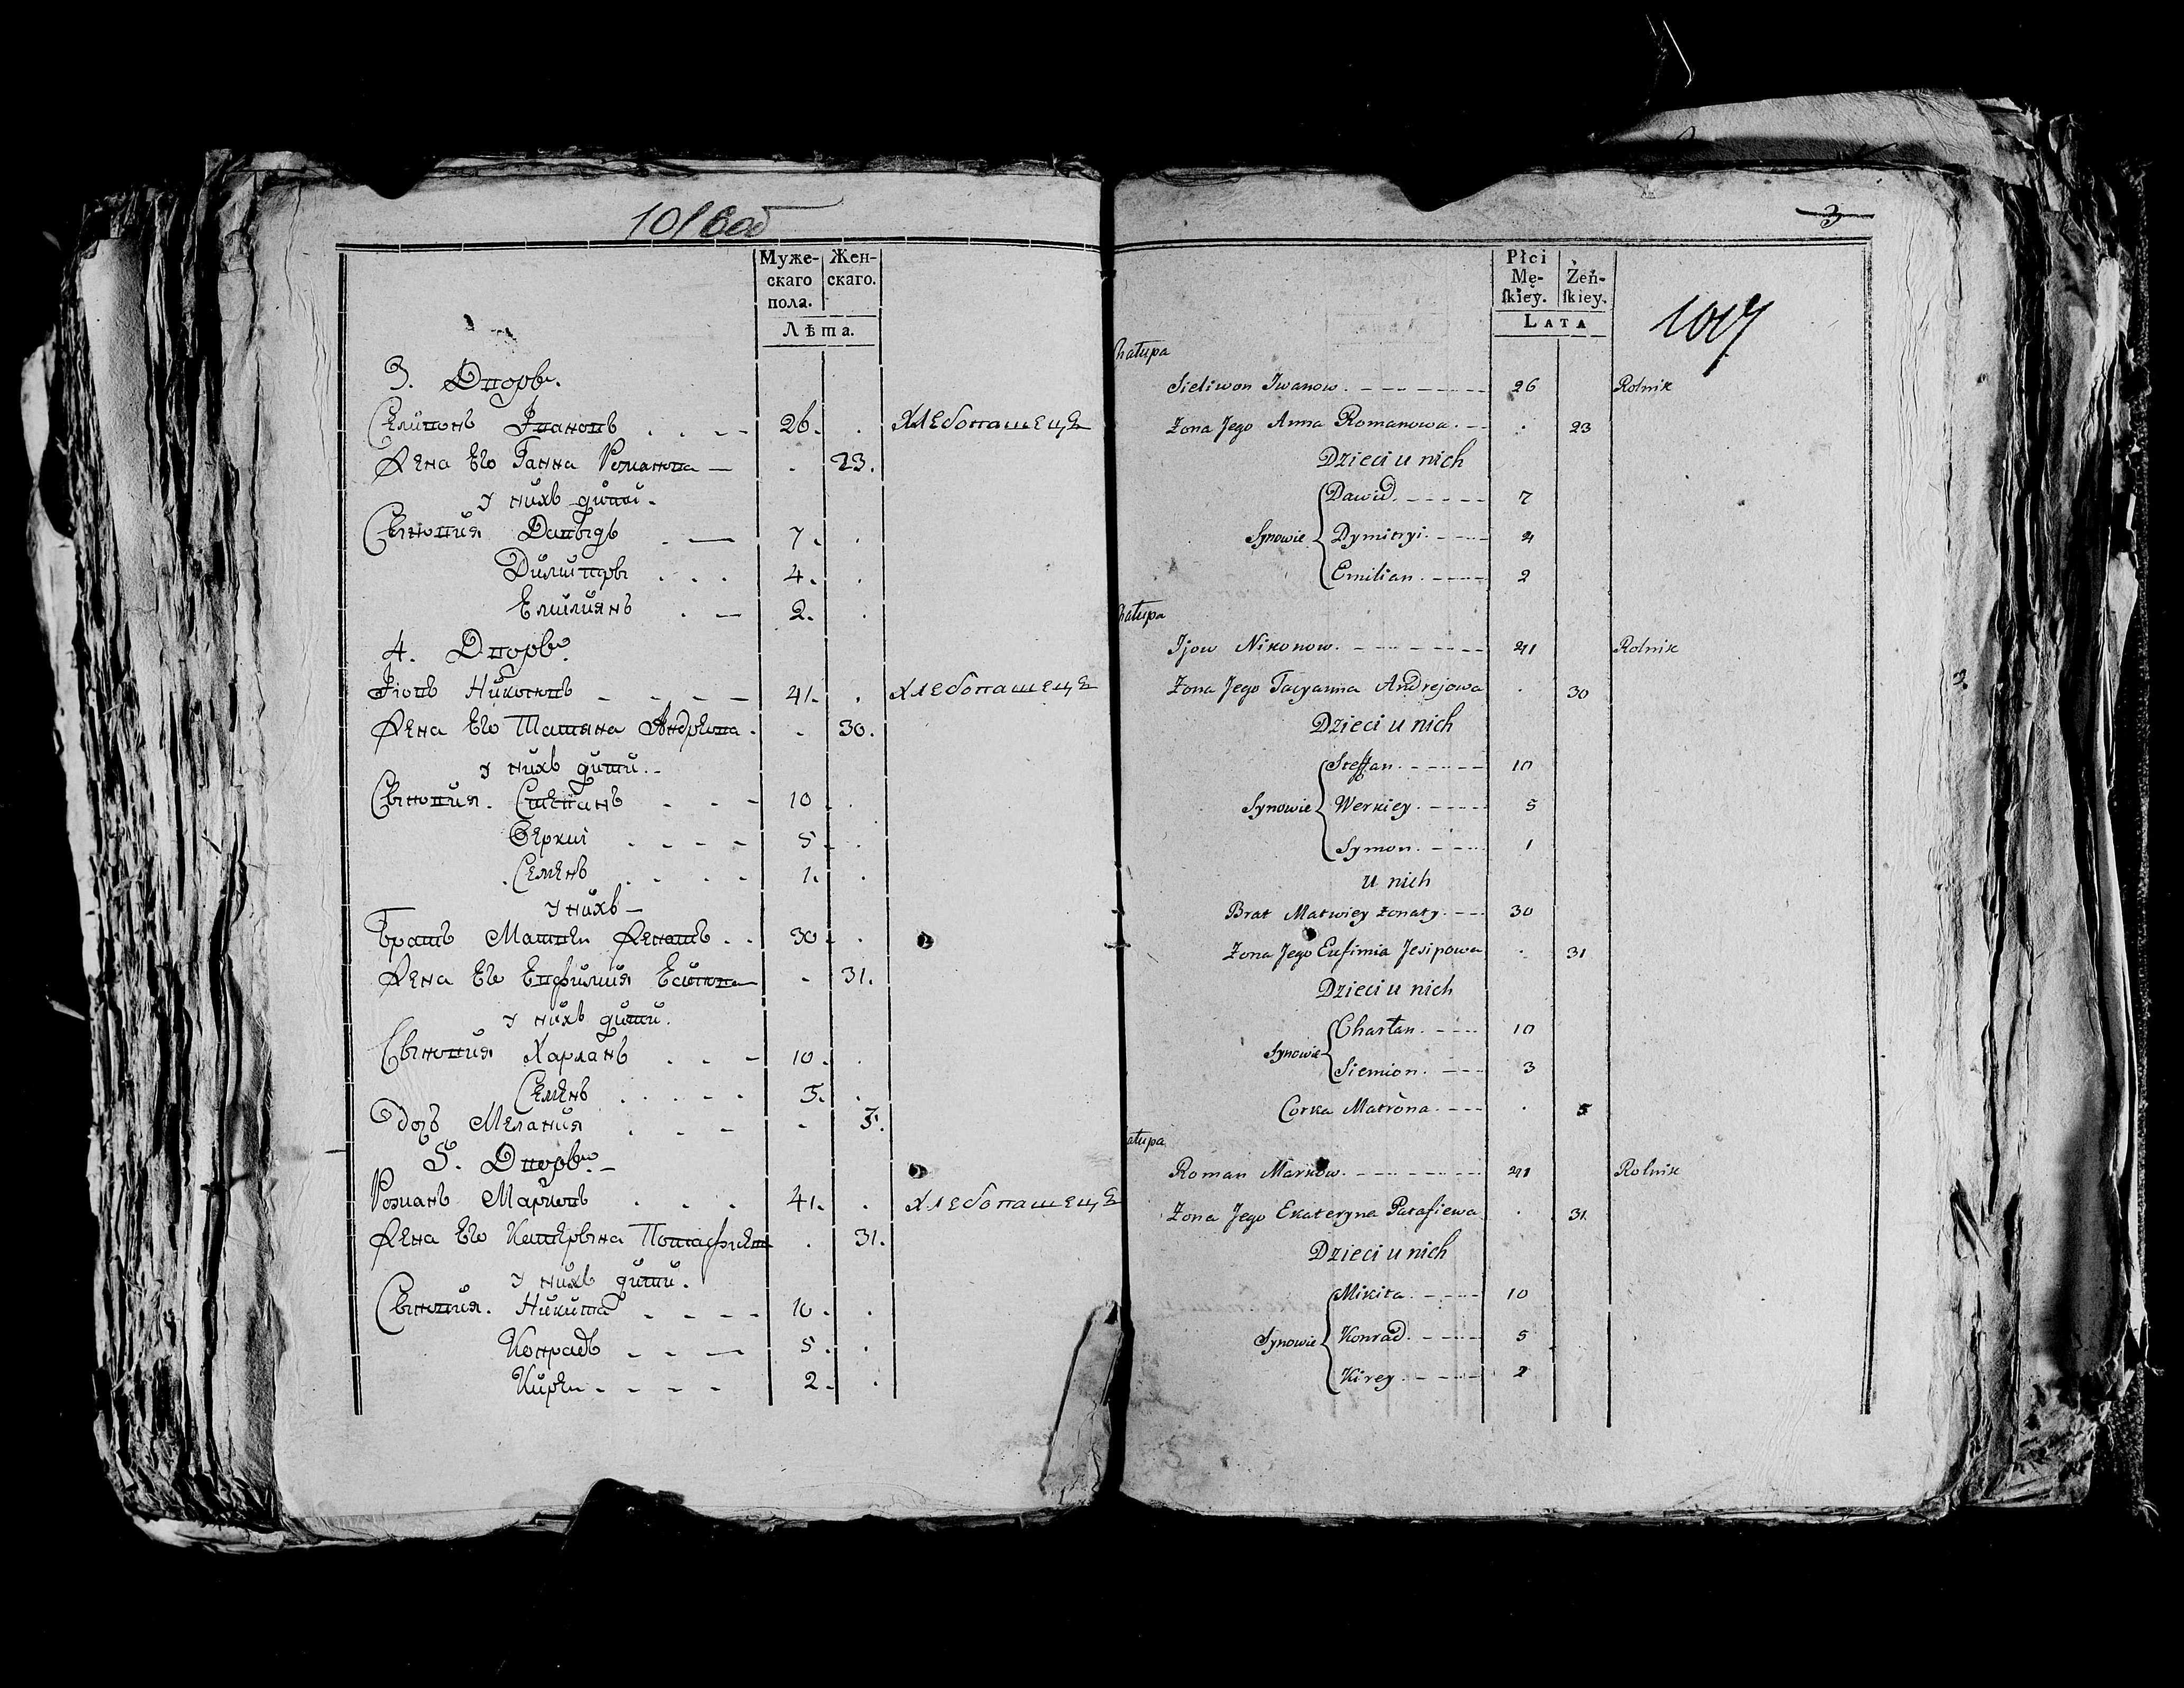 1016 об
Муже-
скаго
пола.
Жен-
скаго.
Лѣта.
3. Дворъ.
Селивонъ Івановъ 26. ХЛебопашецъ
Жена Его Ганна Романова 23.
у нихъ дити.
Сыновия Давыдъ 7.
Димитръ 4.
Емилиянъ 2.
4. Дворъ.
Іовъ Никоновъ 41. ХЛебопашецъ
Жена Его Татяна Андрева 30.
у нихъ дити.
Сыновия. Степанъ 10
Верки 5
Семенъ 1.
у нихъ
Братъ Матвеи Женатъ 30
Жена Его Евфимия Есипова 31.
у нихъ дити.
Сыновия Харланъ 10.
Семенъ 3.
Дочъ Мелания 3.
5. Дворъ.
Романъ Марковъ 41. ХЛебопашецъ
Жена Его Катерына 31.
у нихъ дити.
Сыновия. Никита 10.
Конрадъ 5.
Киреи 2.
3
Płci
Mę-
skiey.
Żeń-
skiey.
LATA
1017
hałupa
Sieliwon Iwanow 26 Rolnik
Żona Jego Anna Romanowa 23
Dzieci u nich
Dawid 7
Synowie Dymitryi 4
Emilian 2
hałupa
Ijow Nikonow 41 Rolnik
Żona Jego Tacyanna Andrejowa 30
Dzieci u nich
Steffan 10
Synowie Werkiey 5
Symon 1
u nich
Brat Matwiey żonaty 30
Żona Jego Eufimia Jesipowa 31
Dzieci u nich
Charłan 10
Synowie
Siemion 3
Corka Matrona 5
ałupa
Roman Markow 41 Rolnik
Żona Jego Ekateryna Patafiewa 31
Dzieci u nich
Mikita 10
Synowie Konrad 5
Kirey 2